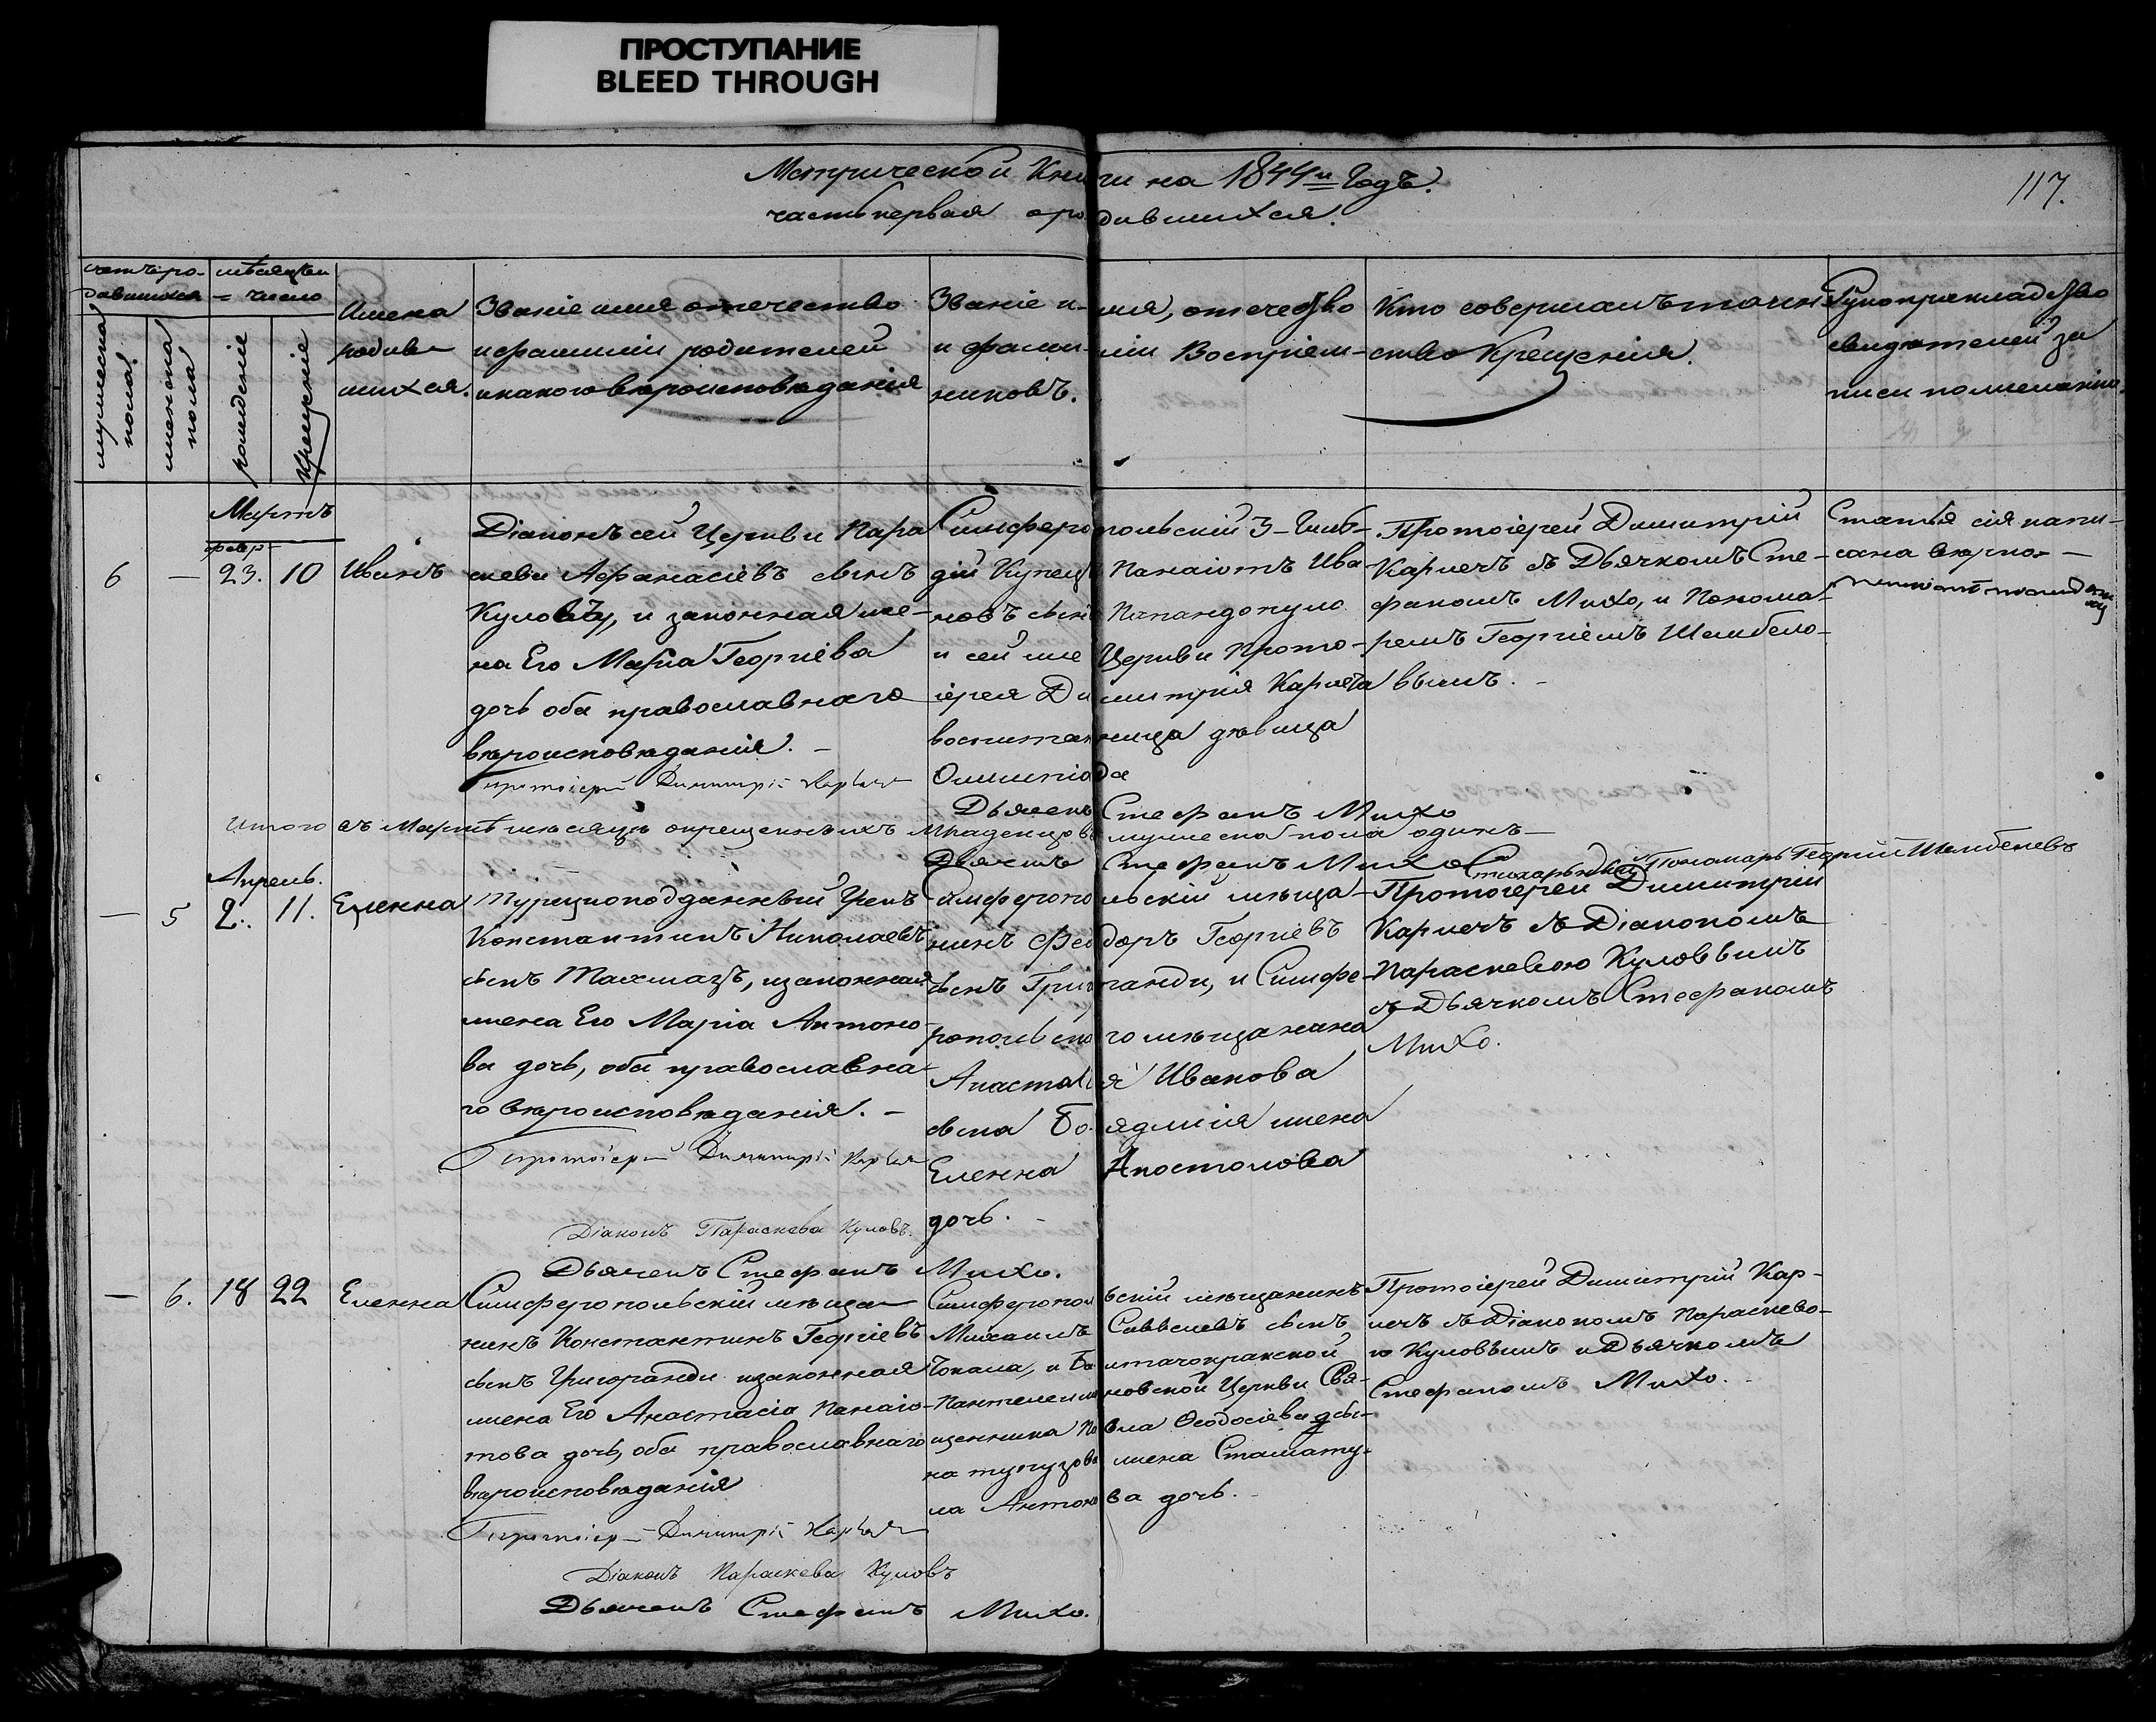 ПРОСТУПАНИЕ
BLEED THROUGH
Метрической Книги на 1844й Годъ.
117.
часть первая о родившихся.
счетъ ро-
дившихся
мужеска пола.
женска пола
мѣсяцъ и
число
рожденіе
Крещеніе
Имена
родив-
шихся.
Званіе имя отечество
и фамиліи родителей
и какого вѣроисповѣданія
Званіе имя, отечество
и фамиліи Воспріем-
никовъ.
Кто совершалъ таин-
ство Крещенія.
Рукоприкладство
свидѣтелей за
писи по желанію.
Мартъ
февр-
6 — 23. 10 Иванъ
Діаконъ сей Церкви Пара
скева Афанасіевъ сынъ
Куловъ, и законная же-
на Его Марія Георгіева
дочь оба православнаго
вѣроисповѣданія. –
Симферопольскій 3-Гиль-
дій Купецъ Панаіотъ Ива
новъ сынъ Папандопуло
и сей же Церкви Прото-
іерея Димитрія Карпета
воспитанница дѣвица
Олимпіада
Протоіерей Димитрій
Карпетъ съ Дьячкомъ Сте-
фаномъ Михо, и Понома-
ремъ Георгіемъ Шембело-
вымъ. –
Статья сія напи-
сана вѣрно –
Протоіерей Димитрій
Дьячекъ Стефанъ Михо
Итого въ Мартѣ мѣсяцѣ окрещенныхъ младенцовъ мужеска пола одинъ —
Дьячекъ Стефанъ Михо Стихарный Пономарь Георгій Шембелевъ
Апрель.
— 5 2. 11. Еленна
Турецкоподданный Грекъ
Константинъ Николаевъ
сынъ Тахмазъ, и законная
жена Его Марія Антоно-
ва дочь, оба православна-
го вѣроисповѣданія. –
Симферопольскій мѣща-
нинъ Феодоръ Георгіевъ
сынъ Григоранди, и Симфе-
ропольскаго мѣщанина
Анастасія Иванова
сына жена
Еленна Апостолова
дочь. –
Протоіерей Димитрій
Карпетъ съ Діакономъ
Параскевою Куловымъ
съ Дьячкомъ Стефаномъ
Михо.
Протоіерей Димитрій
Діаконъ Параскева Куловъ.
Дьячекъ Стефанъ Михо.
— 6. 18 22 Еленна
Симферопольскій мѣща-
нинъ Константинъ Георгіевъ
сынъ Григоранди и законная
жена Его Анастасія Панаіо-
това дочь, оба православнаго
вѣроисповѣданія
Симферопольскій мѣщанинъ
Михаилъ Саввелевъ сынъ
Чокала, и
Пантелеимоновской Церкви Свя-
щенника Павла Ѳеодосіева сы-
на жена Стамату-
ла Антонова дочь. –
Протоіерей Димитрій Кар-
петъ съ Діакономъ Параскево-
ю Куловымъ и Дьячкомъ
Стефаномъ Михо.
Протоіерей Димитрій
Діаконъ Параскева Куловъ
Дьячекъ Стефанъ Михо.